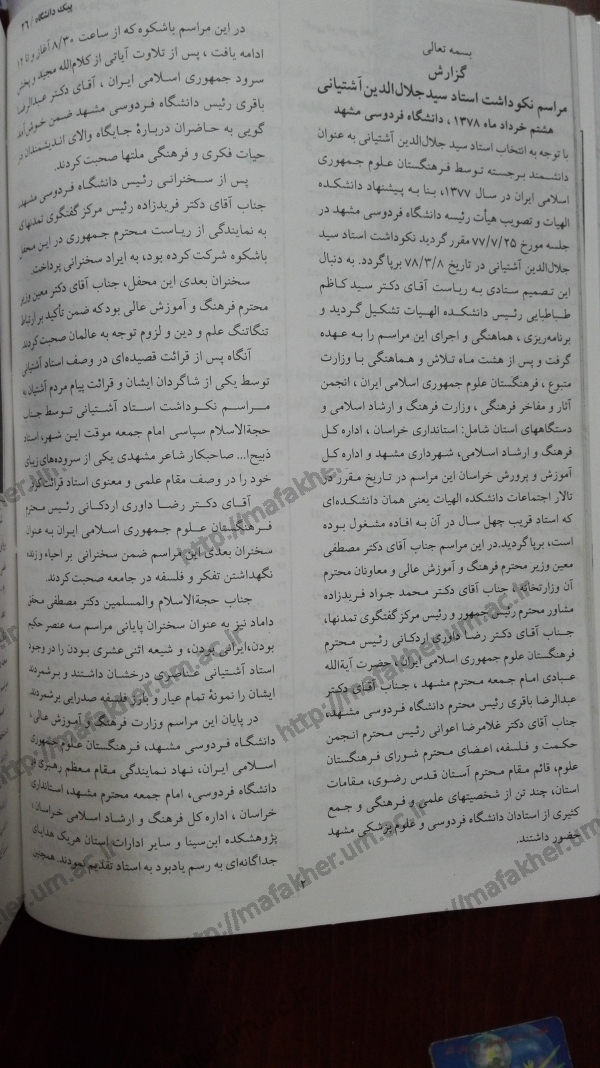 پیک دانشگاه / ۲۶
بسمه تعالی
گزارش
مراسم نکوداشت استاد سید جلال‌الدین آشتیانی
هشتم خرداد ماه ۱۳۷۸ ، دانشگاه فردوسی مشهد
با توجه به انتخاب استاد سید جلال‌الدین آشتیانی به عنوان
دانشمند برجسته توسط فرهنگستان علوم جمهوری
اسلامی ایران در سال ۱۳۷۷، بنا به پیشنهاد دانشکده
الهیات و تصویب هیأت رئیسه دانشگاه فردوسی مشهد در
جلسه مورخ ۷۷/۷/۲۵ مقرر گردید نکوداشت استاد سید
جلال‌الدین آشتیانی در تاریخ ۷۸/۳/۸ برپا گردد. به دنبال
این تصمیم ستادی به ریاست آقای دکتر سید کاظم
طباطبایی رئیس دانشکده الهیات تشکیل گردید و
برنامه‌ریزی ، هماهنگی و اجرای این مراسم را به عهده
گرفت و پس از هشت ماه تلاش و هماهنگی با وزارت
متبوع ، فرهنگستان علوم جمهوری اسلامی ایران ، انجمن
آثار و مفاخر فرهنگی ، وزارت فرهنگ و ارشاد اسلامی و
دستگاههای استان شامل: استانداری خراسان ، اداره کل
فرهنگ و ارشاد اسلامی، شهرداری مشهد و اداره کل
آموزش و پرورش خراسان این مراسم در تاریخ مقرر در
تالار اجتماعات دانشکده الهیات یعنی همان دانشکده‌ای
که استاد قریب چهل سال در آن به افاده مشغول بوده
است، برپا گردید.در این مراسم جناب آقای دکتر مصطفی
معین وزیر محترم فرهنگ و آموزش عالی و معاونان محترم
آن وزارتخانه ، جناب آقای دکتر محمد جواد فریدزاده
مشاور محترم رئیس جمهور و رئیس مرکز گفتگوی تمدنها،
جناب آقای دکتر رضا داوری اردکانی رئیس محترم
فرهنگستان علوم جمهوری اسلامی ایران ، حضرت آیة‌الله
عبادی امام جمعه محترم مشهد ، جناب آقای دکتر
عبدالرضا باقری رئیس محترم دانشگاه فردوسی مشهد،
جناب آقای دکتر غلامرضا اعوانی رئیس محترم انجمن
حکمت و فلسفه، اعضای محترم شورای فرهنگستان
علوم، قائم مقام محترم آستان قدس رضوی، مقامات
استان، چند تن از شخصیتهای علمی و فرهنگی و جمع
کثیری از استادان دانشگاه فردوسی و علوم پزشکی مشهد
حضور داشتند.
در این مراسم باشکوه که از ساعت ۸/۳۰ آغاز و تا ۱۲
ادامه یافت ، پس از تلاوت آیاتی از کلام‌الله مجید و پخش
سرود جمهوری اسلامی ایران ، آقای دکتر عبدالرضا
باقری رئیس دانشگاه فردوسی مشهد ضمن خوش‌آمد
گویی به حاضران دربارهٔ جایگاه والای اندیشمندان در
حیات فکری و فرهنگی ملتها صحبت کردند.
پس از سخنرانی رئیس دانشگاه فردوسی مشهد،
جناب آقای دکتر فریدزاده رئیس مرکز گفتگوی تمدنهای
به نمایندگی از ریاست محترم جمهوری در این محفل
باشکوه شرکت کرده بود، به ایراد سخنرانی پرداخت.
سخنران بعدی این محفل، جناب آقای دکتر معین وزیر
محترم فرهنگ و آموزش عالی بود که ضمن تأکید بر ارتباط
تنگاتنگ علم و دین و لزوم توجه به عالمان صحبت کردند.
آنگاه پس از قرائت قصیده‌ای در وصف استاد آشتیانی
توسط یکی از شاگردان ایشان و قرائت پیام مردم آشتیان به
مراسم نکوداشت استاد آشتیانی توسط جناب
حجةالاسلام سپاسی امام جمعه موقت این شهر، استاد
ذبیح‌ا... صاحبکار شاعر مشهدی یکی از سروده‌های زیبای
خود را در وصف مقام علمی و معنوی استاد قرائت کرد.
آقای دکتر رضا داوری اردکانی رئیس محترم
فرهنگستان علوم جمهوری اسلامی ایران به عنوان
سخنران بعدی این مراسم ضمن سخنرانی بر احیاء و زنده
نگهداشتن تفکر و فلسفه در جامعه صحبت کردند.
جناب حجةالاسلام والمسلمین دکتر مصطفی محقق
داماد نیز به عنوان سخنران پایانی مراسم سه عنصر حکیم
بودن،ایرانی بودن، و شیعه اثنی‌عشری بودن را در وجود
استاد آشتیانی عناصری درخشان داشتند و برشمردند
ایشان را نمونهٔ تمام عیار و بارز فلسفه صدرایی برشمردند.
در پایان این مراسم وزارت فرهنگ و آموزش عالی ،
دانشگاه فردوسی مشهد، فرهنگستان علوم جمهوری
اسلامی ایران، نهاد نمایندگی مقام معظم رهبری در
دانشگاه فردوسی، امام جمعه محترم مشهد، استانداری
خراسان ، اداره کل فرهنگ و ارشاد اسلامی خراسان ،
پژوهشکده ابن‌سینا و سایر ادارات استان هریک هدایای
جداگانه‌ای به رسم یادبود به استاد تقدیم نمودند. همچنین
۲
http://mafakher.um.ac.ir
http://mafakher.um.ac.ir
http://mafakher.um.ac.ir